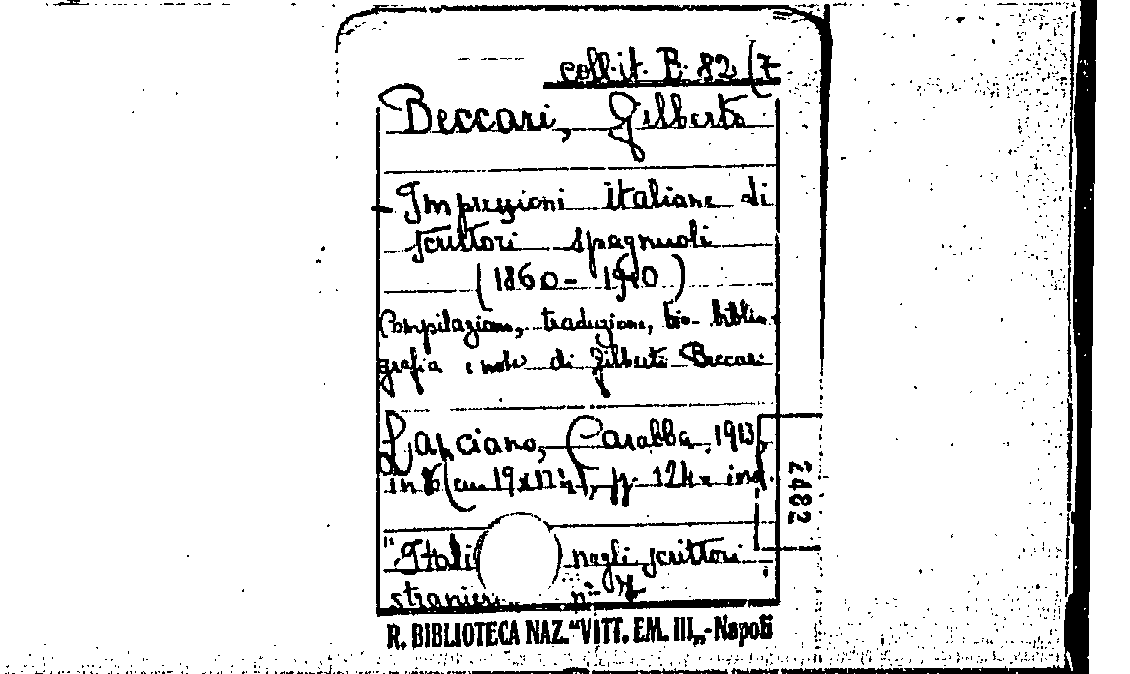 coll. it. B. 82 (7
Beccari, Gilberto
Impressioni italiane di
scrittori spagnuoli
(1860 - 1910)
Compilazione, traduzione, bio-biblio-
grafia e note di Gilberto Beccari
Lanciano, Carabba, 1913,
in 16 (cm 19x12½), pp. 124 ind.
"Itali negli scrittori
stranieri n° 7
R. BIBLIOTECA NAZ. "VITT. EM. III„-Napoli
2482